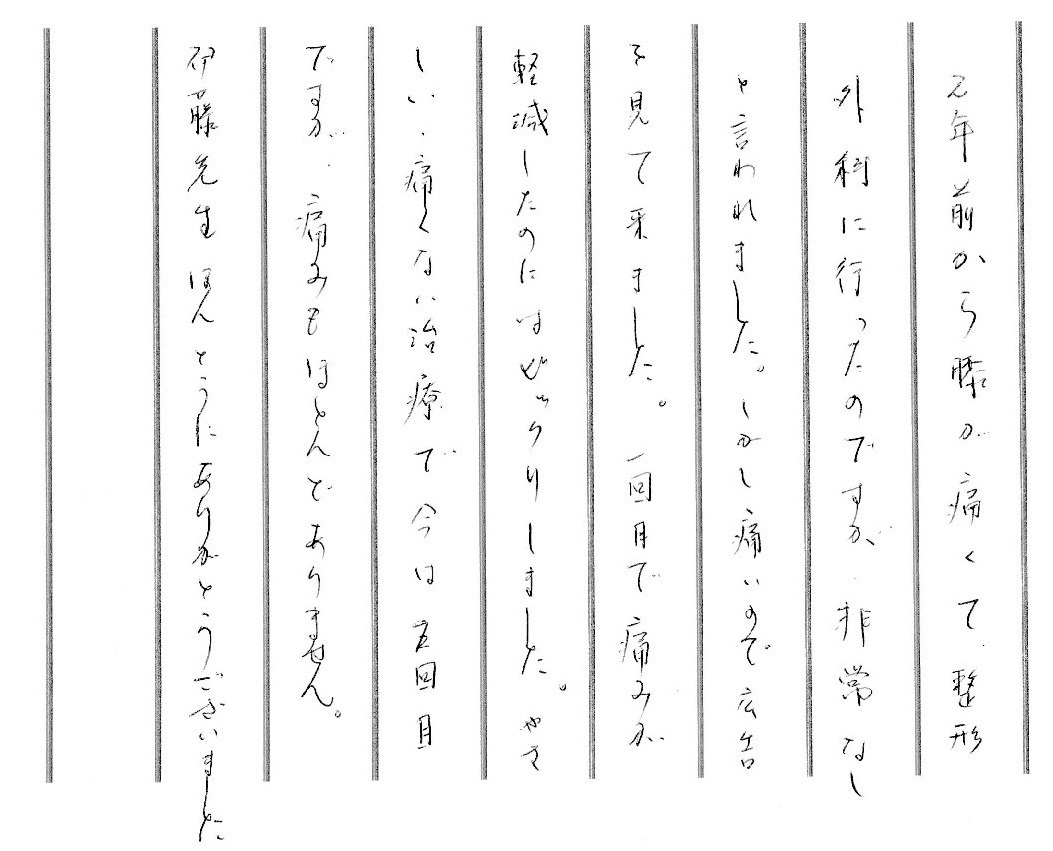 元年前から膝が痛くて、整形
外科に行ったのですが、非常なし
と言われました。しかし痛いので広告
を見て来ました。一回目で痛みが
軽減したのにはビックリしました。やさ
しい、痛くない治療で今は五回目
ですが、痛みもほとんどありません。
伊藤先生ほんとうにありがとうございました